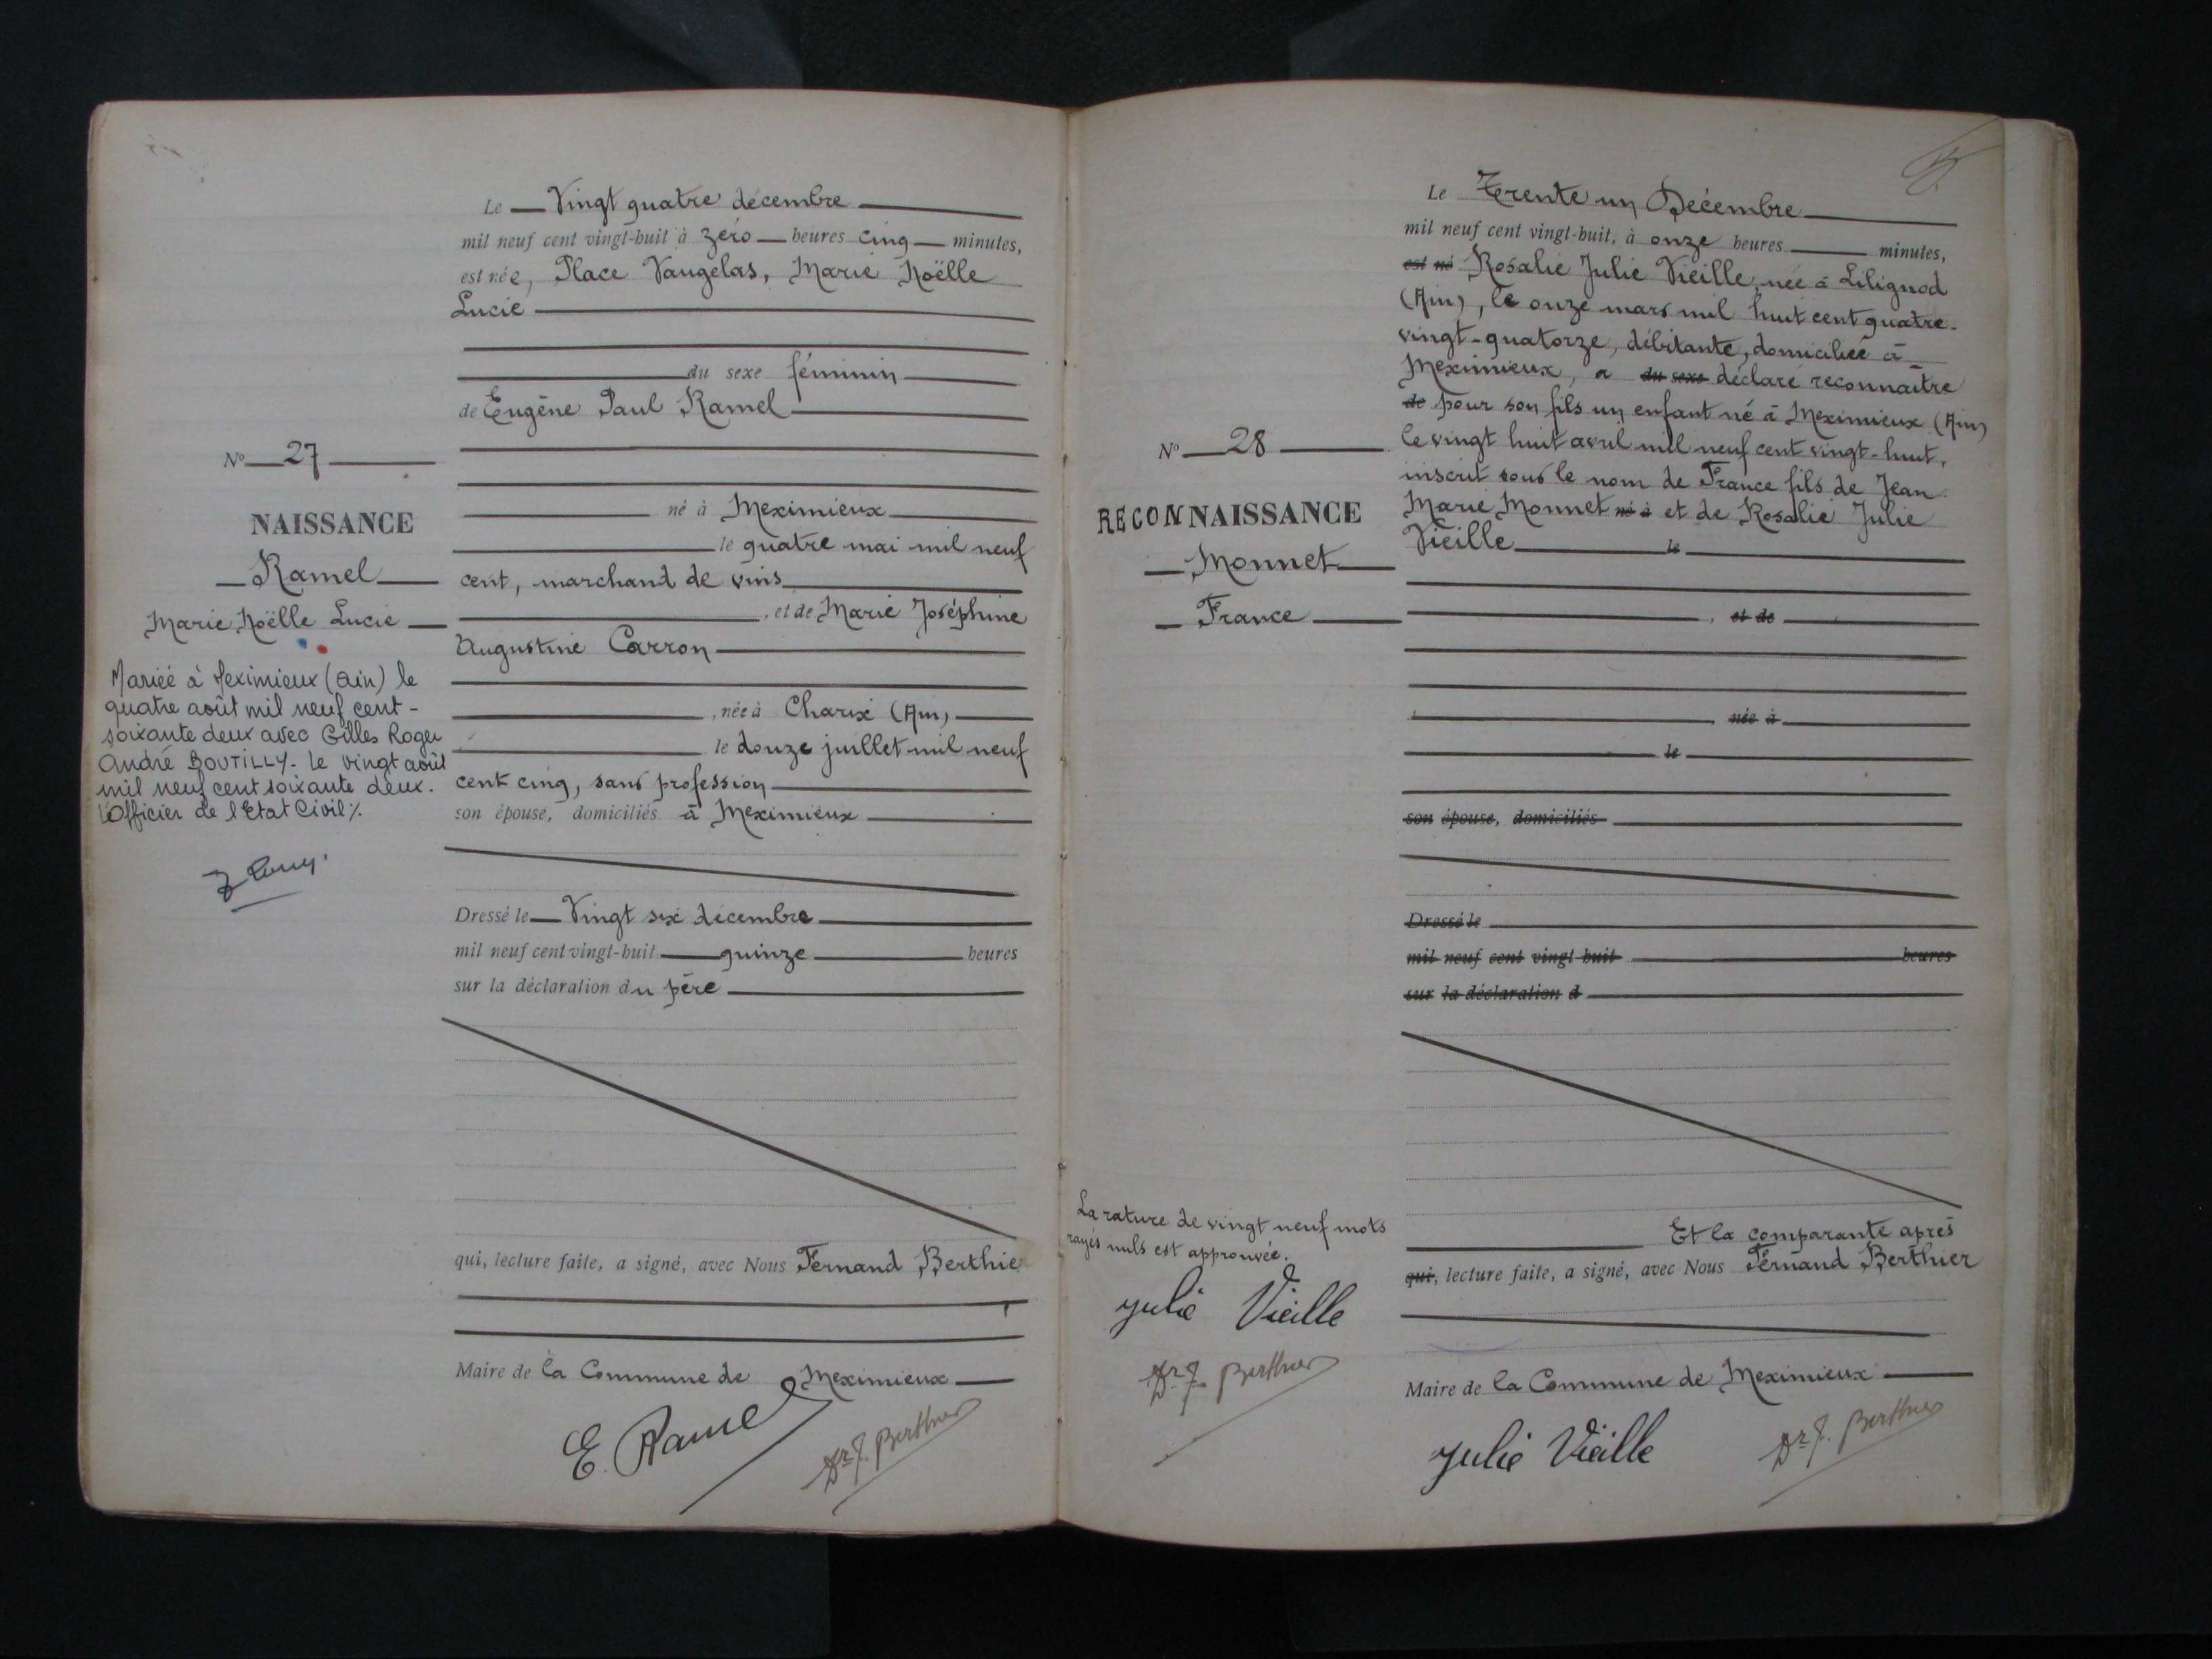 Le Vingt quatre décembre
mil neuf cent vingt-huit à zéro heures cinq minutes,
est née, Place Vaugelas, Marie Noëlle
Lucie
du sexe féminin
de Eugène Paul Ramel
né à Meximieux
le quatre mai mil neuf
cent, marchand de vins
, et de Marie Joséphine
Augustine Carron
, née à Charix (Ain)
le douze juillet mil neuf
cent cinq, sans profession
son épouse, domiciliés à Meximieux
Dressé le Vingt six décembre
mil neuf cent vingt-huit quinze heures
sur la déclaration du père
qui, lecture faite, a signé, avec Nous Fernand Berthier
Maire de la Commune de Meximieux
E. Ramel Dr F. Berthier
N° 27
NAISSANCE
Ramel
Marie Noëlle Lucie
Mariée à Meximieux (Ain) le
quatre août mil neuf cent-
soixante deux avec Gilles Roger
André BOUTILLY. Le vingt août
mil neuf cent soixante deux.
L'Officier de l'Etat Civil ./.
Le Trente un Décembre
mil neuf cent vingt-huit, à onze heures minutes,
est né Rosalie Julie Vieille, née à Lilignod
(Ain), le onze mars mil huit cent quatre-
vingt-quatorze, débitante, domiciliée à
Meximieux, a du sexe déclaré reconnaître
de pour son fils un enfant né à Meximieux (Ain)
le vingt huit avril mil neuf cent vingt-huit,
inscrit sous le nom de France fils de Jean
Marie Monnet né à et de Rosalie Julie
Vieille le
, et de
, née à
le
son épouse, domiciliés
Dressé le
mil neuf cent vingt-huit heures
sur la déclaration d
Et la comparante après
qui, lecture faite, a signé, avec Nous Fernand Berthier
Maire de la Commune de Meximieux
Julie Vieille Dr F. Berthier
N° 28
RECONNAISSANCE
Monnet
France
La rature de vingt neuf mots
rayés nuls est approuvée.
Julie Vieille
Dr F. Berthier